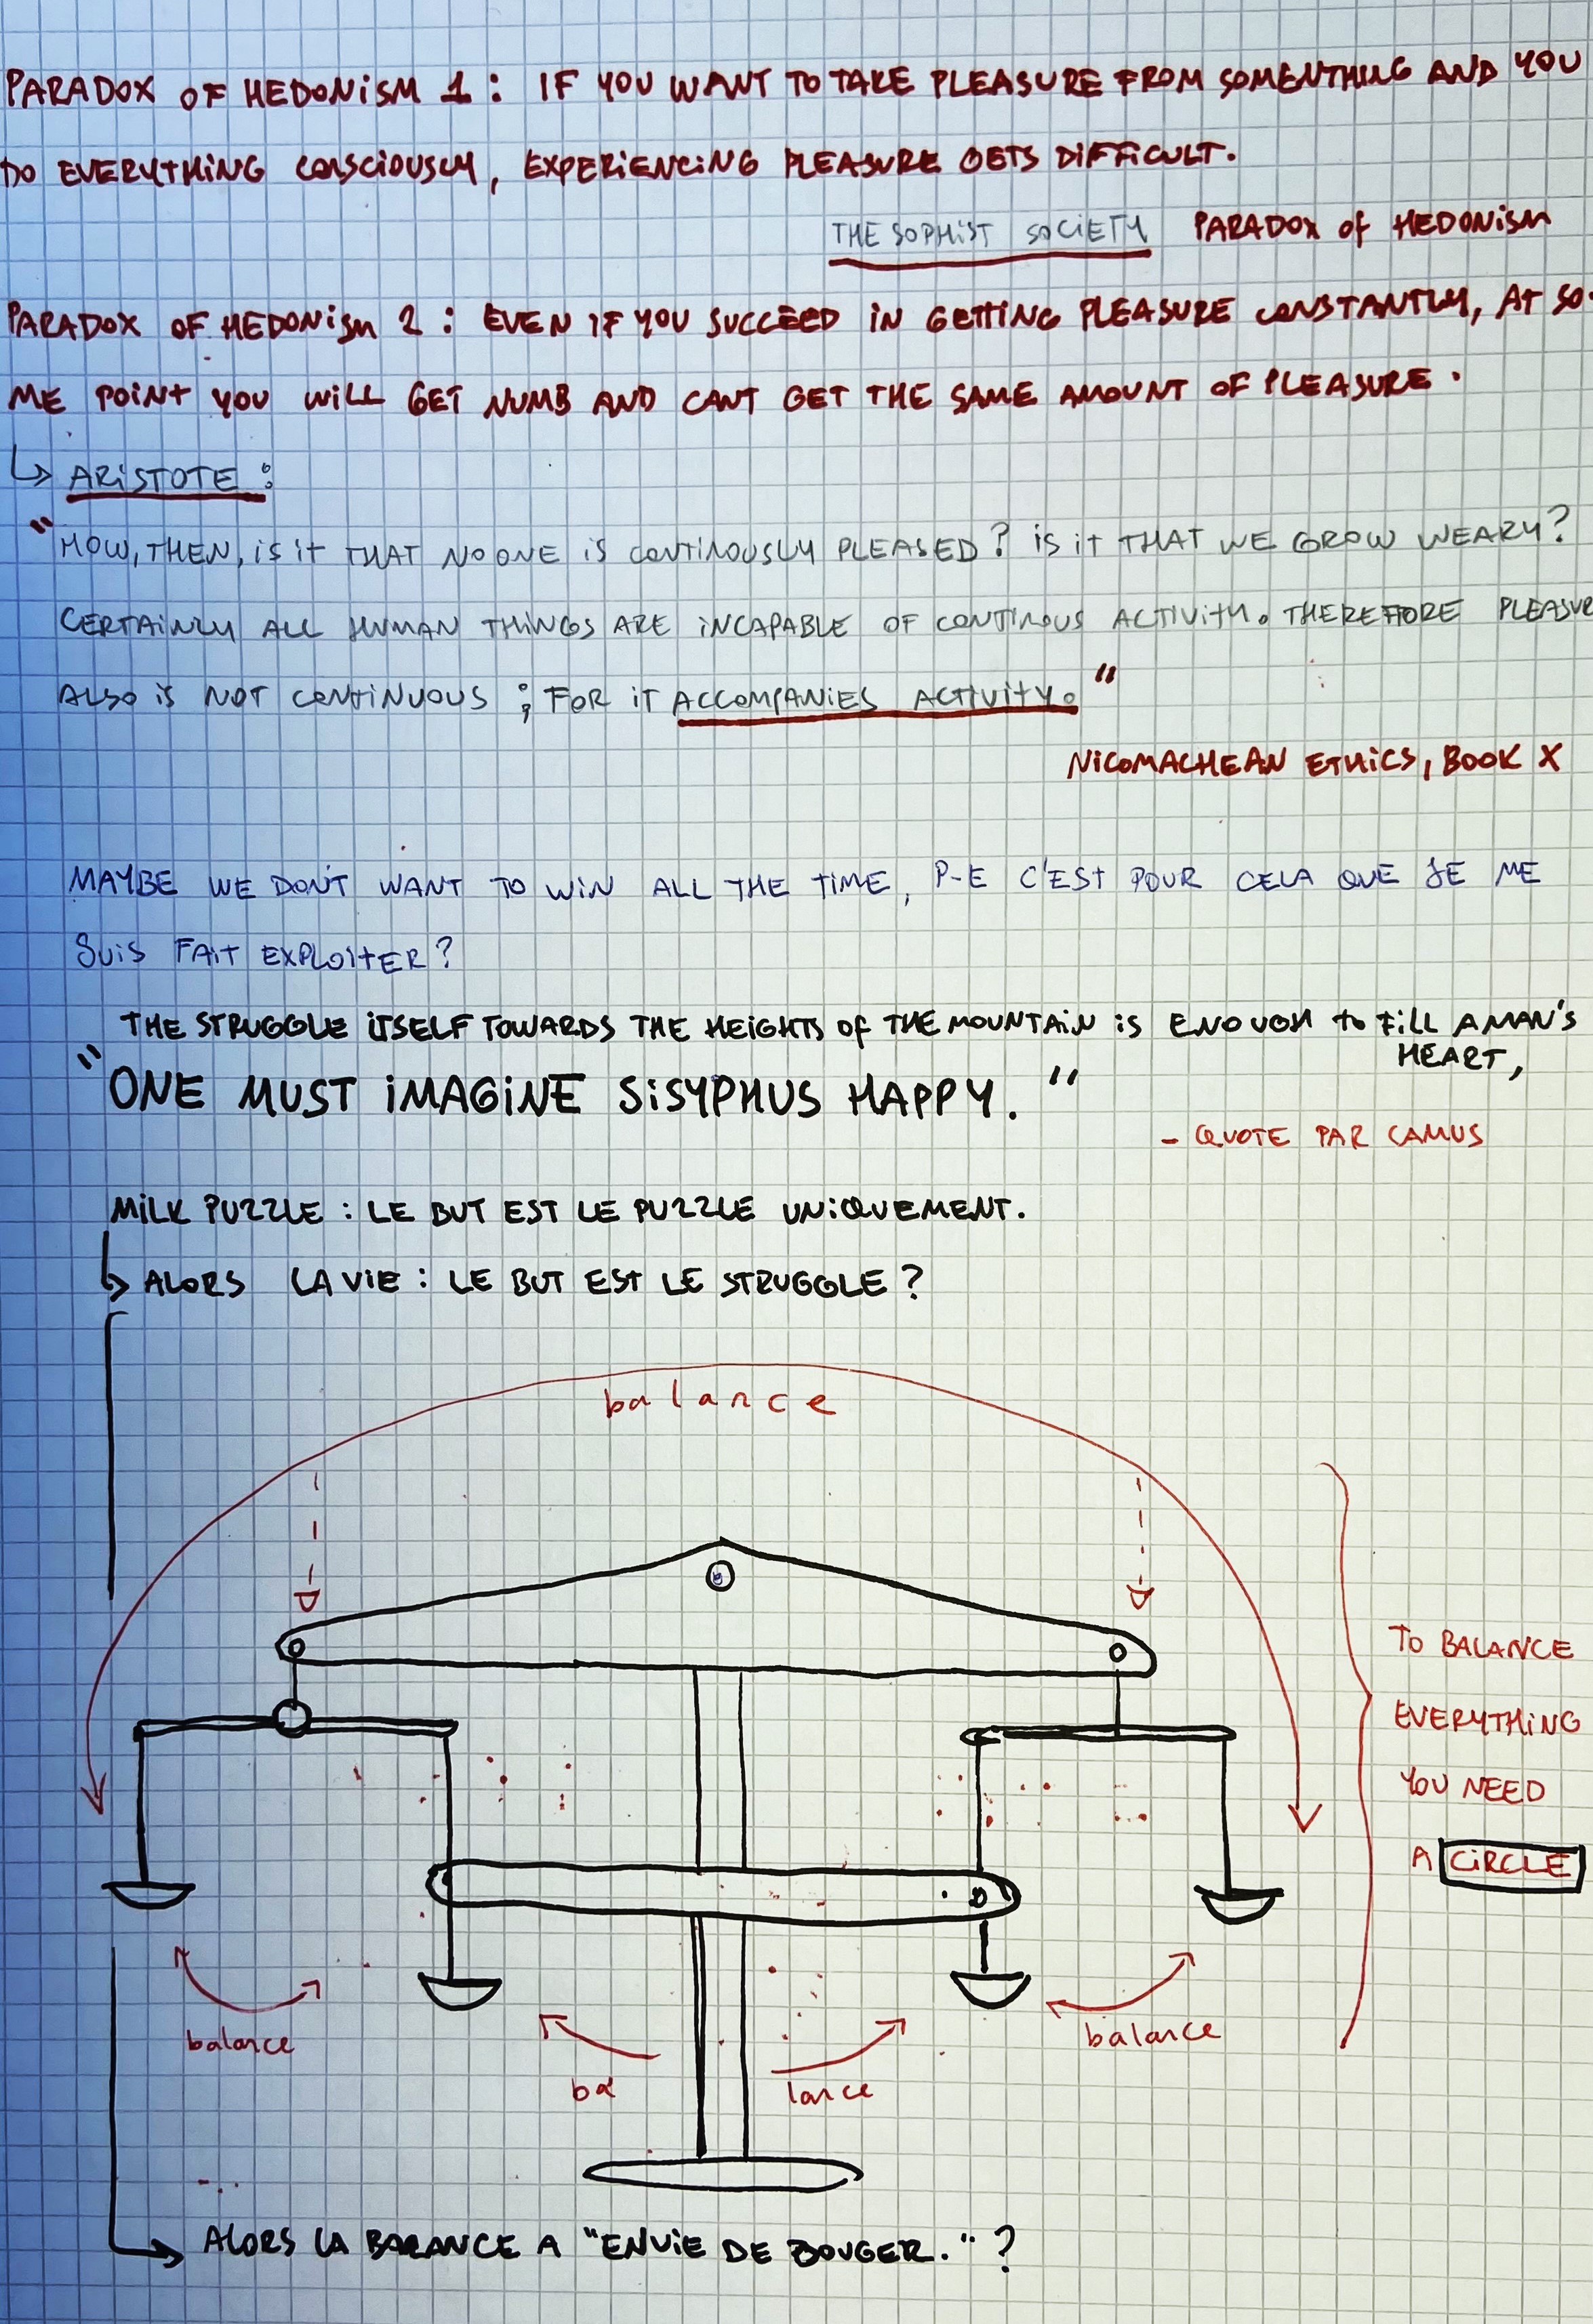 PARADOX OF HEDONISM 1 : IF YOU WANT TO TAKE PLEASURE FROM SOMENTHING AND YOU
DO EVERYTHING CONSCIOUSLY, EXPERIENCING PLEASURE GETS DIFFICULT.
THE SOPHIST SOCIETY PARADOX OF HEDONISM
PARADOX OF HEDONISM 2 : EVEN IF YOU SUCCEED IN GETTING PLEASURE CONSTANTLY, AT SO-
ME POINT YOU WILL GET NUMB AND CANT GET THE SAME AMOUNT OF PLEASURE.
↳ ARISTOTE :
"HOW, THEN, IS IT THAT NO ONE IS CONTINOUSLY PLEASED? IS IT THAT WE GROW WEARY?
CERTAINLY ALL HUMAN THINGS ARE INCAPABLE OF CONTINOUS ACTIVITY. THEREFORE PLEASURE
ALSO IS NOT CONTINUOUS ; FOR IT ACCOMPANIES ACTIVITY."
NICOMACHEAN ETHICS, BOOK X
MAYBE WE DON'T WANT TO WIN ALL THE TIME, P-E C'EST POUR CELA QUE JE ME
SUIS FAIT EXPLOITER?
THE STRUGGLE ITSELF TOWARDS THE HEIGHTS OF THE MOUNTAIN IS ENOUGH TO FILL A MAN'S
HEART,
"ONE MUST IMAGINE SISYPHUS HAPPY."
- QUOTE PAR CAMUS
MILK PUZZLE : LE BUT EST LE PUZZLE UNIQUEMENT.
↳ ALORS LA VIE : LE BUT EST LE STRUGGLE ?
balance
TO BALANCE
EVERYTHING
YOU NEED
A CIRCLE
balance
ba lance
balance
ALORS LA BARANCE A "ENVIE DE BOUGER." ?